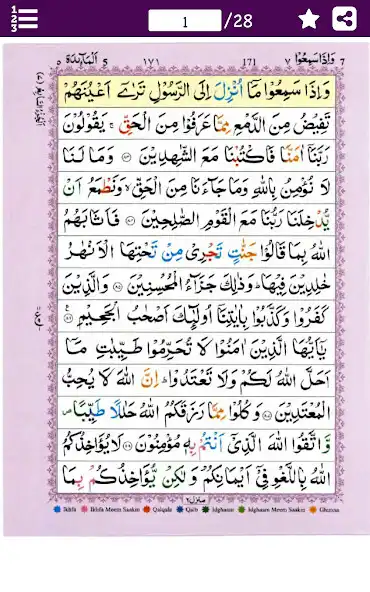 1 /28
5 اَلْمَآئِدَة ٥ ١٧١ 171 وَاِذَا سَمِعُوْا ٧ 7
وَاِذَا سَمِعُوْا مَآ اُنْزِلَ اِلَى الرَّسُوْلِ تَرٰٓى اَعْيُنَهُمْ
تَفِيْضُ مِنَ الدَّمْعِ مِمَّا عَرَفُوْا مِنَ الْحَقِّ ۚ يَقُوْلُوْنَ
رَبَّنَآ اٰمَنَّا فَاكْتُبْنَا مَعَ الشّٰهِدِيْنَ ٨٣ وَمَا لَنَا
لَا نُؤْمِنُ بِاللّٰهِ وَمَا جَآءَنَا مِنَ الْحَقِّ ۙ وَنَطْمَعُ اَنْ
يُّدْخِلَنَا رَبُّنَا مَعَ الْقَوْمِ الصّٰلِحِيْنَ ٨٤ فَاَثَابَهُمُ
اللّٰهُ بِمَا قَالُوْا جَنّٰتٍ تَجْرِيْ مِنْ تَحْتِهَا الْاَنْهٰرُ
خٰلِدِيْنَ فِيْهَا ؕ وَذٰلِكَ جَزَآءُ الْمُحْسِنِيْنَ ٨٥ وَالَّذِيْنَ
كَفَرُوْا وَكَذَّبُوْا بِاٰيٰتِنَآ اُولٰٓئِكَ اَصْحٰبُ الْجَحِيْمِ ٨٦
يٰٓاَيُّهَا الَّذِيْنَ اٰمَنُوْا لَا تُحَرِّمُوْا طَيِّبٰتِ مَآ
اَحَلَّ اللّٰهُ لَكُمْ وَلَا تَعْتَدُوْا ؕ اِنَّ اللّٰهَ لَا يُحِبُّ
الْمُعْتَدِيْنَ ٨٧ وَكُلُوْا مِمَّا رَزَقَكُمُ اللّٰهُ حَلٰلًا طَيِّبًا ۪
وَّاتَّقُوا اللّٰهَ الَّذِيْٓ اَنْتُمْ بِهٖ مُؤْمِنُوْنَ ٨٨ لَا يُؤَاخِذُكُمُ
اللّٰهُ بِاللَّغْوِ فِيْٓ اَيْمَانِكُمْ وَلٰكِنْ يُّؤَاخِذُكُمْ بِمَا
منزل ٢
Ikhfa Ikhfa Meem Saakin Qalqala Qalb Idghaam Idghaam Meem Saakin Ghunna